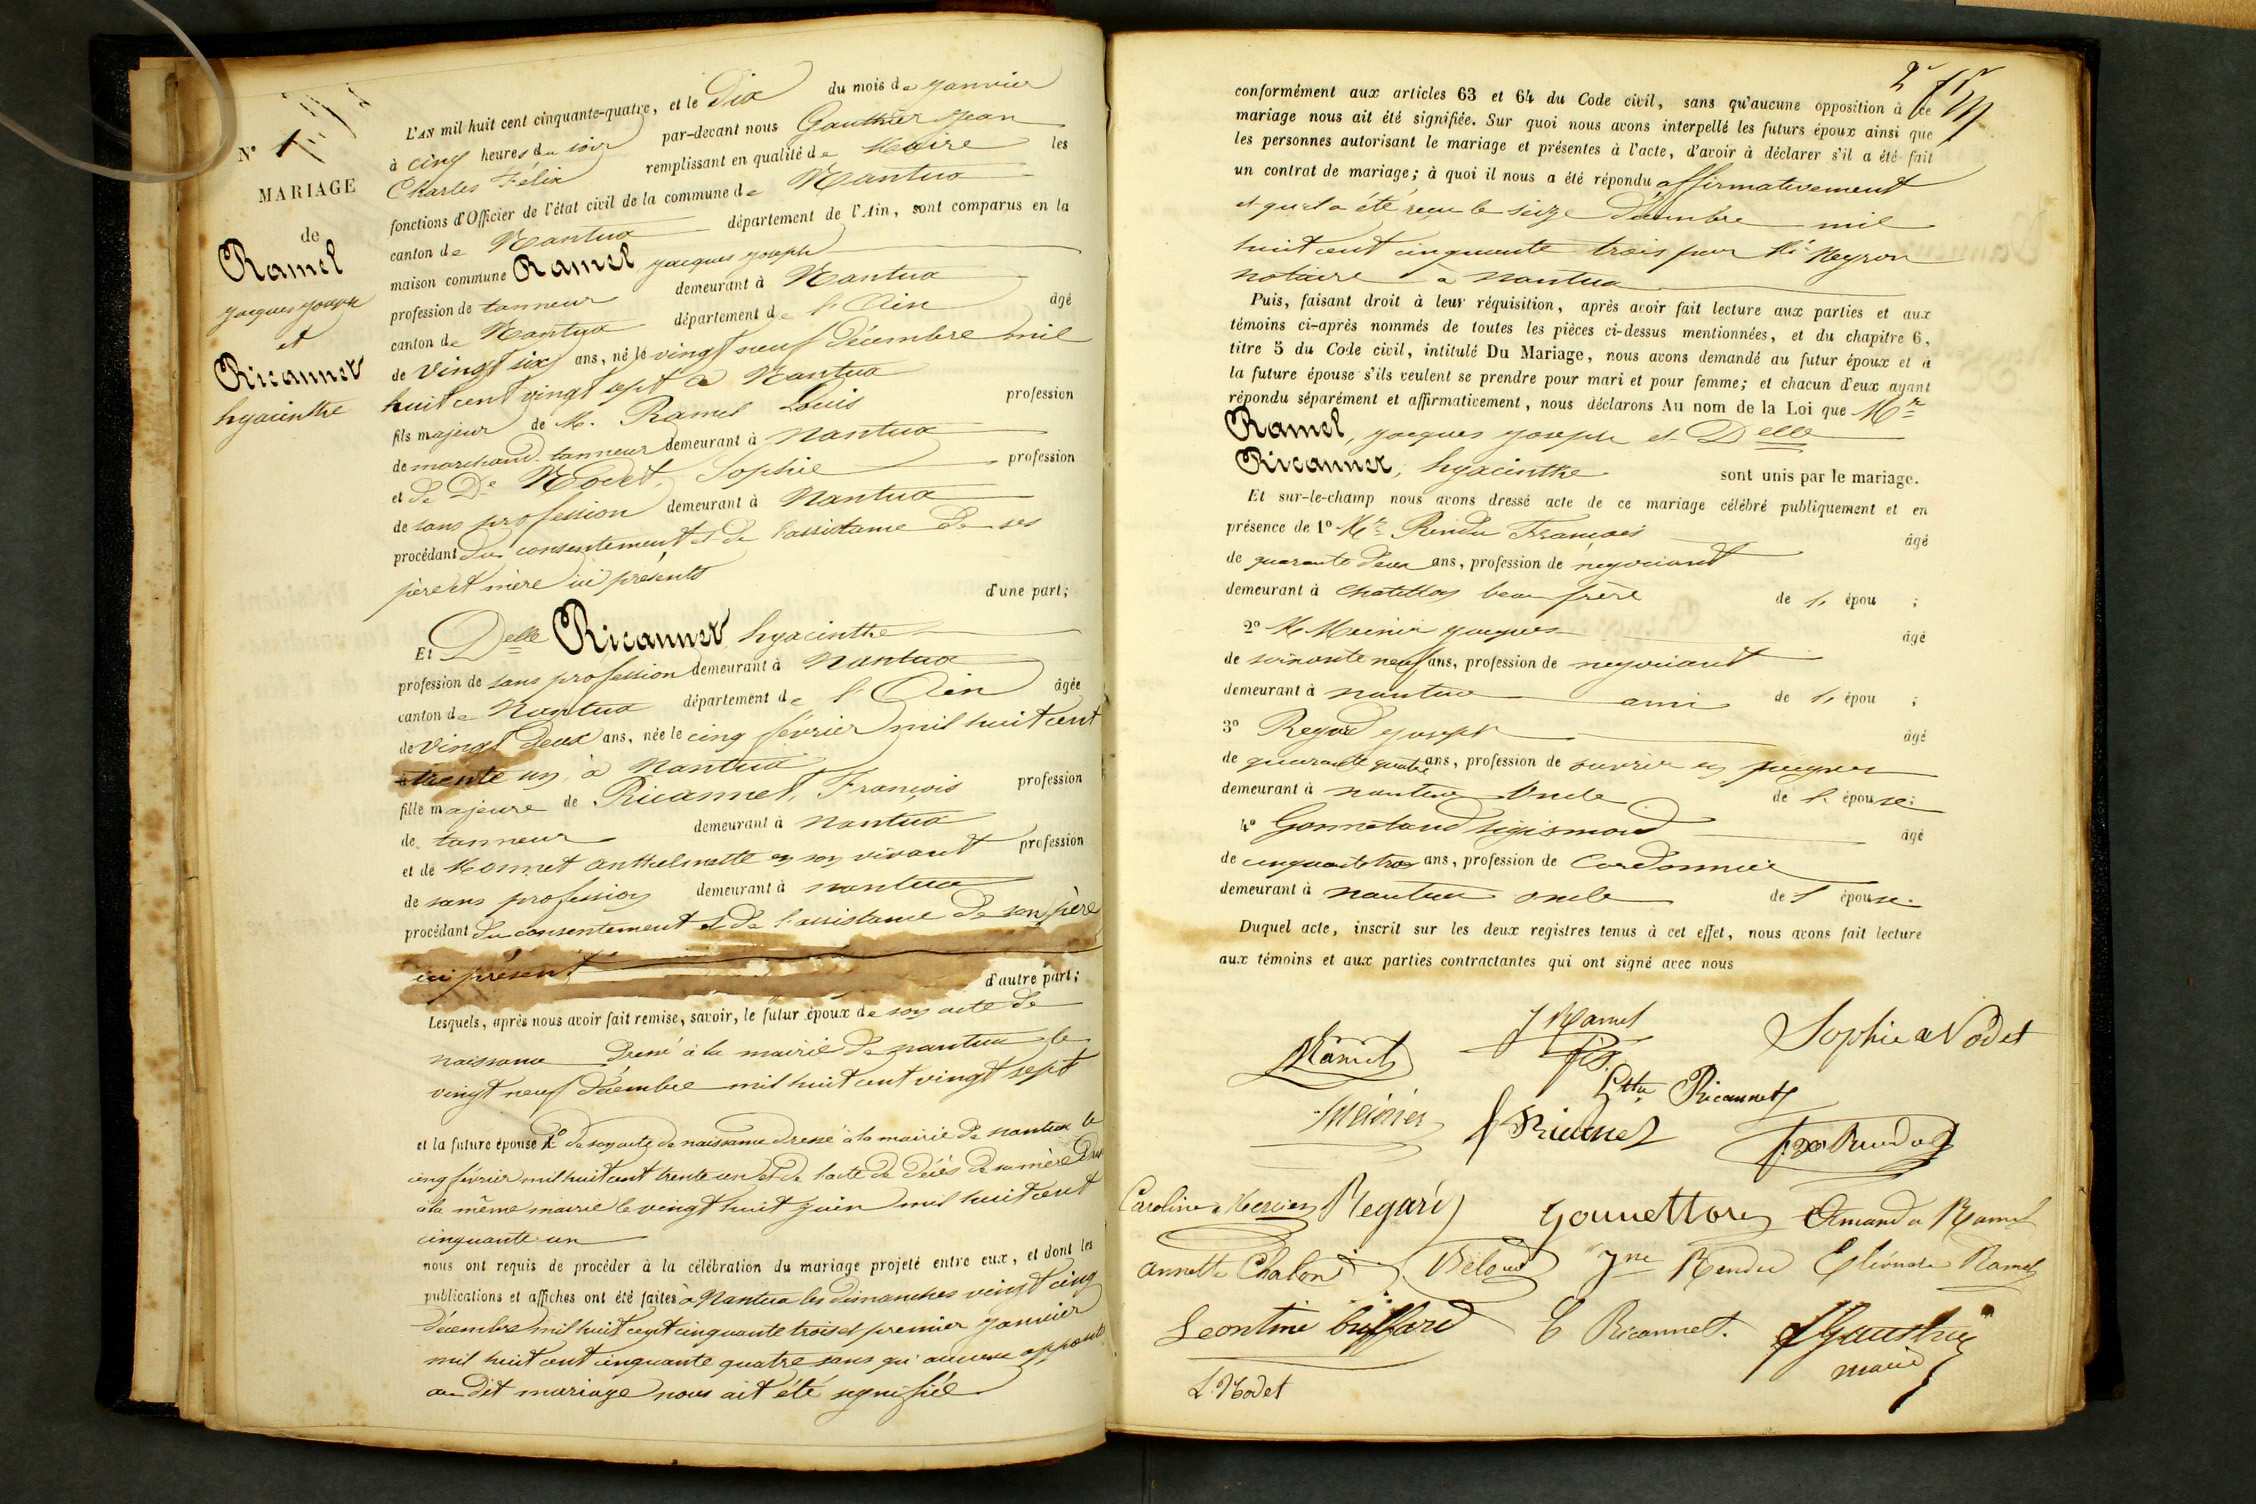 N° 1
MARIAGE
de
Ramel
Jacques Joseph
et
Ricannet
hyacinthe
L'AN mil huit cent cinquante-quatre, et le Dix du mois de Janvier
à cinq heures du soir par-devant nous Gauthier Jean
Charles Félix remplissant en qualité de Maire les
fonctions d'Officier de l'état civil de la commune de Nantua
canton de Nantua département de l'Ain, sont comparus en la
maison commune Ramel Jacques Joseph
profession de tanneur demeurant à Nantua
canton de Nantua département de l'Ain âgé
de vingt six ans, né le vingt neuf décembre mil
huit cent vingt sept à Nantua
fils majeur de M. Ramel Louis profession
de marchand tanneur demeurant à Nantua
et de De Nodet, Sophie profession
de sans profession demeurant à Nantua
procédant du consentement et de l'assistance de ses
père et mère ici présents
d'une part;
Et Delle Ricannet hyacinthe
profession de sans profession demeurant à Nantua
canton de Nantua département de l'Ain âgée
de vingt deux ans, née le cinq février mil huit cent
trente un, à Nantua
fille majeure de Ricannet, François profession
de tanneur demeurant à Nantua
et de Monnet anthelmette en son vivant profession
de sans profession demeurant à nantua
procédant du consentement et de l'assistance de son père
ici présent
d'autre part;
Lesquels, après nous avoir fait remise, savoir, le futur époux de son acte de
naissance Dressé à la mairie de nantua le
vingt neuf décembre mil huit cent vingt sept
et la future épouse 1° de son acte de naissance dressé à la mairie de nantua le
cinq février mil huit cent trente un et de l'acte de décès de sa mère
à la même mairie le vingt huit juin mil huit cent
cinquante un
nous ont requis de procéder à la célébration du mariage projeté entre eux, et dont les
publications et affiches ont été faites à Nantua les dimanches vingt cinq
décembre mil huit cent cinquante trois et premier janvier
mil huit cent cinquante quatre sans qu'aucune
au dit mariage nous ait été signifiée
2
conformément aux articles 63 et 64 du Code civil, sans qu'aucune opposition à ce
mariage nous ait été signifiée. Sur quoi nous avons interpellé les futurs époux ainsi que
les personnes autorisant le mariage et présentes à l'acte, d'avoir à déclarer s'il a été fait
un contrat de mariage; à quoi il nous a été répondu affirmativement
et qu'il a été reçu le seize décembre mil
huit cent cinquante trois par Me Neyron
notaire à nantua
Puis, faisant droit à leur réquisition, après avoir fait lecture aux parties et aux
témoins ci-après nommés de toutes les pièces ci-dessus mentionnées, et du chapitre 6,
titre 5 du Code civil, intitulé Du Mariage, nous avons demandé au futur époux et à
la future épouse s'ils veulent se prendre pour mari et pour femme; et chacun d'eux ayant
répondu séparément et affirmativement, nous déclarons Au nom de la Loi que Mr
Ramel, Jacques Joseph et Delle
Ricannet, hyacinthe sont unis par le mariage.
Et sur-le-champ nous avons dressé acte de ce mariage célébré publiquement et en
présence de 1° Mr Rendu François âgé
de quarante deux ans, profession de négociant
demeurant à Chatillon beau frère de l' épou ;
2° M Meunier Jacques âgé
de soixante neuf ans, profession de negociant
demeurant à nantua ami de l' épou ;
3° Regard Joseph âgé
de quarante quatre ans, profession de ouvrier en peignes
demeurant à nantua Oncle de l' épouse;
4° sigismond âgé
de cinquante trois ans, profession de Cordonnier
demeurant à nantua oncle de l' épouse.
Duquel acte, inscrit sur les deux registres tenus à cet effet, nous avons fait lecture
aux témoins et aux parties contractantes qui ont signé avec nous
Ramel J Ramel fils Sophie Nodet
Ricannet
Meunier Ricannet Rendu
Caroline Mercier Regard Armanda Ramel
annette Chalon Rendu Eléonore Ramel
Leontine buffard C Ricannet.
maire
L. Nodet